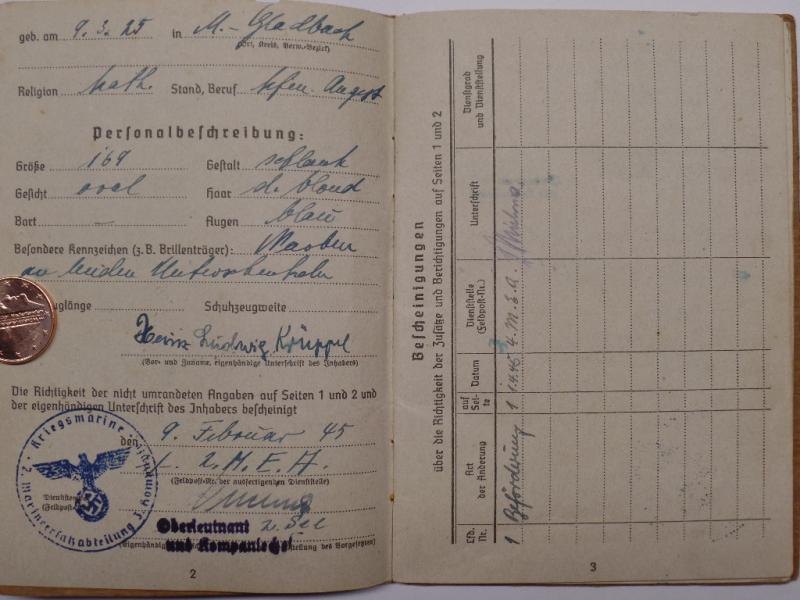 geb. am 9. 3. 25 in M.-Gladbach
(Ort, Kreis, Verw.-Bezirk)
Religion kath. Stand, Beruf kfm. Angest
Personalbeschreibung:
Größe 169 Gestalt schlank
Gesicht oval Haar d. blond
Bart – Augen blau
Besondere Kennzeichen (z. B. Brillenträger): Narben
an beiden Unterschenkeln
uglänge Schuhzeugweite
Heinz Ludwig Krüppel
(Vor- und Zuname, eigenhändige Unterschrift des Inhabers)
Die Richtigkeit der nicht umrandeten Angaben auf Seiten 1 und 2 und
der eigenhändigen Unterschrift des Inhabers bescheinigt
den 9. Februar 45
2. M. E. A.
(Feldpost-Nr. der ausfertigenden Dienststelle)
Kriegsmarine
2. Marineersatzabteilung
Dienstste
(Feldpost
z. See
Oberleutnant
und Kompaniechef
(Eigenhändig
stellung des Vorgesetzten)
2
Bescheinigungen
über die Richtigkeit der Zusätze und Berichtigungen auf Seiten 1 und 2
Lfd. Nr.
Art der Änderung
auf Seite
Datum
Dienststelle (Feldpost-Nr.)
Unterschrift
Dienstgrad und Dienststellung
1 Beförderung 1 1.4.45 4. M. E. A.
3